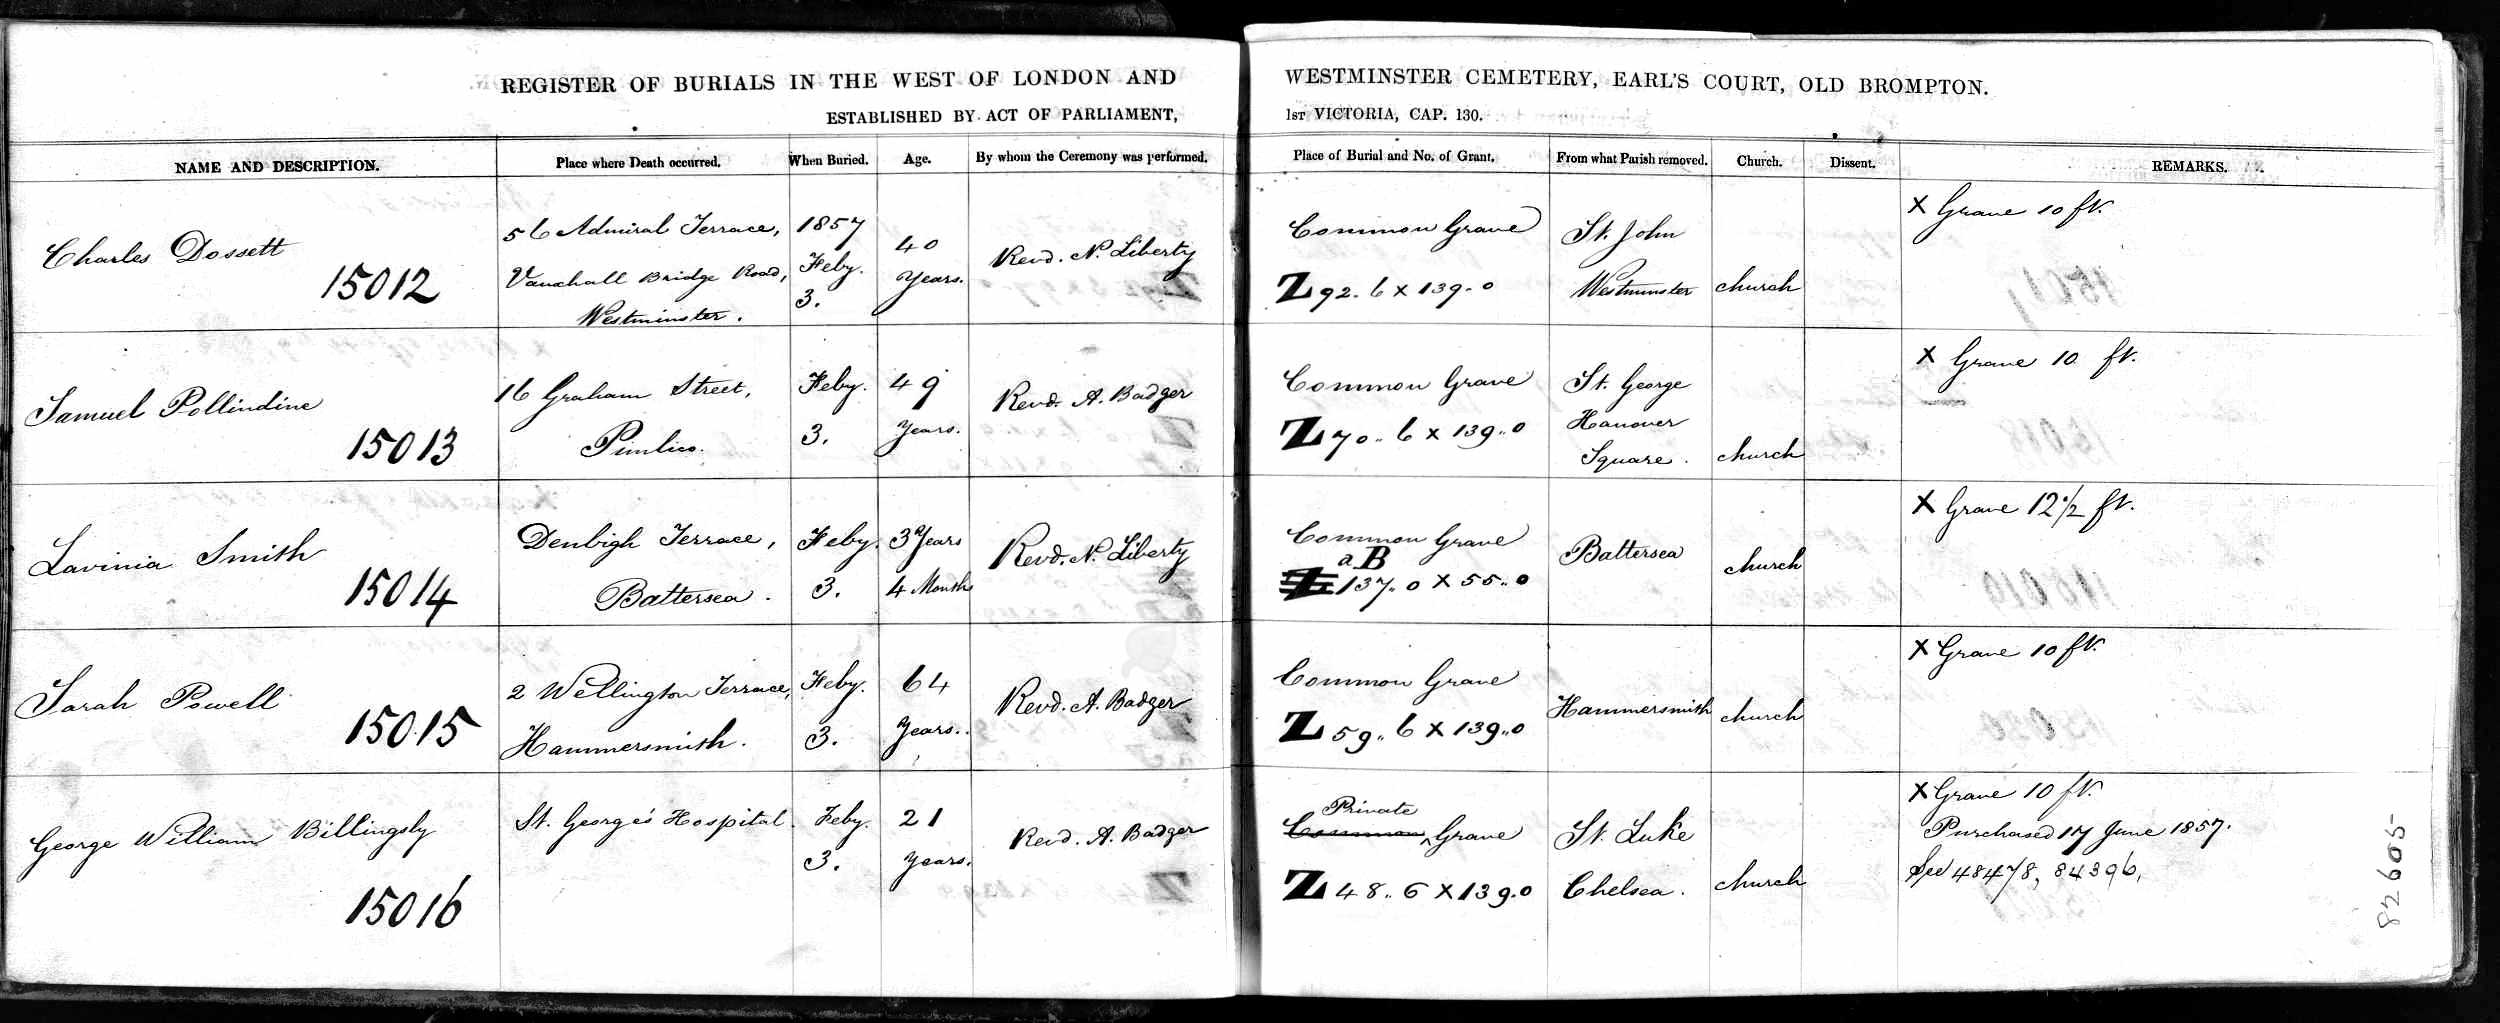 REGISTER OF BURIALS IN THE WEST OF LONDON AND WESTMINSTER CEMETERY, EARL'S COURT, OLD BROMPTON.
ESTABLISHED BY ACT OF PARLIAMENT, 1ST VICTORIA, CAP. 130.
NAME AND DESCRIPTION. Place where Death occurred. When Buried. Age. By whom the Ceremony was performed. Place of Burial and No. of Grant. From what Parish removed. Church. Dissent. REMARKS.
Charles Dossett
15012
56 Admiral Terrace,
Vauxhall Bridge Road,
Westminster.
1857
Feby.
3.
40
Years.
Revd. N. Liberty
Common Grave
Z 92.6 x 139.0
St. John
Westminster
church
X Grave 10 ft.
Samuel Pollindine
15013
16 Graham Street,
Pimlico.
Feby.
3.
49
Years.
Revd. A. Badger
Common Grave
Z 70.. 6 x 139..0
St. George
Hanover
Square.
church
X Grave 10 ft.
Lavinia Smith
15014
Denbigh Terrace,
Battersea.
Feby.
3.
3 Years
4 Months
Revd. N. Liberty
Common Grave
a B
Z 137..0 x 55..0
Battersea
church
X Grave 12 1/2 ft.
Sarah Powell
15015
2 Wellington Terrace,
Hammersmith.
Feby.
3.
64
Years.
Revd. A. Badger
Common Grave
Z 59.. 6 x 139..0
Hammersmith
church
X Grave 10 ft.
George William Billingsly
15016
St. George's Hospital.
Feby.
3.
21
Years.
Revd. A. Badger
Private
Common Grave
Z 48.. 6 x 139.0
St. Luke
Chelsea.
church
X Grave 10 ft.
Purchased 17 June 1857.
See 48478, 84396,
82605